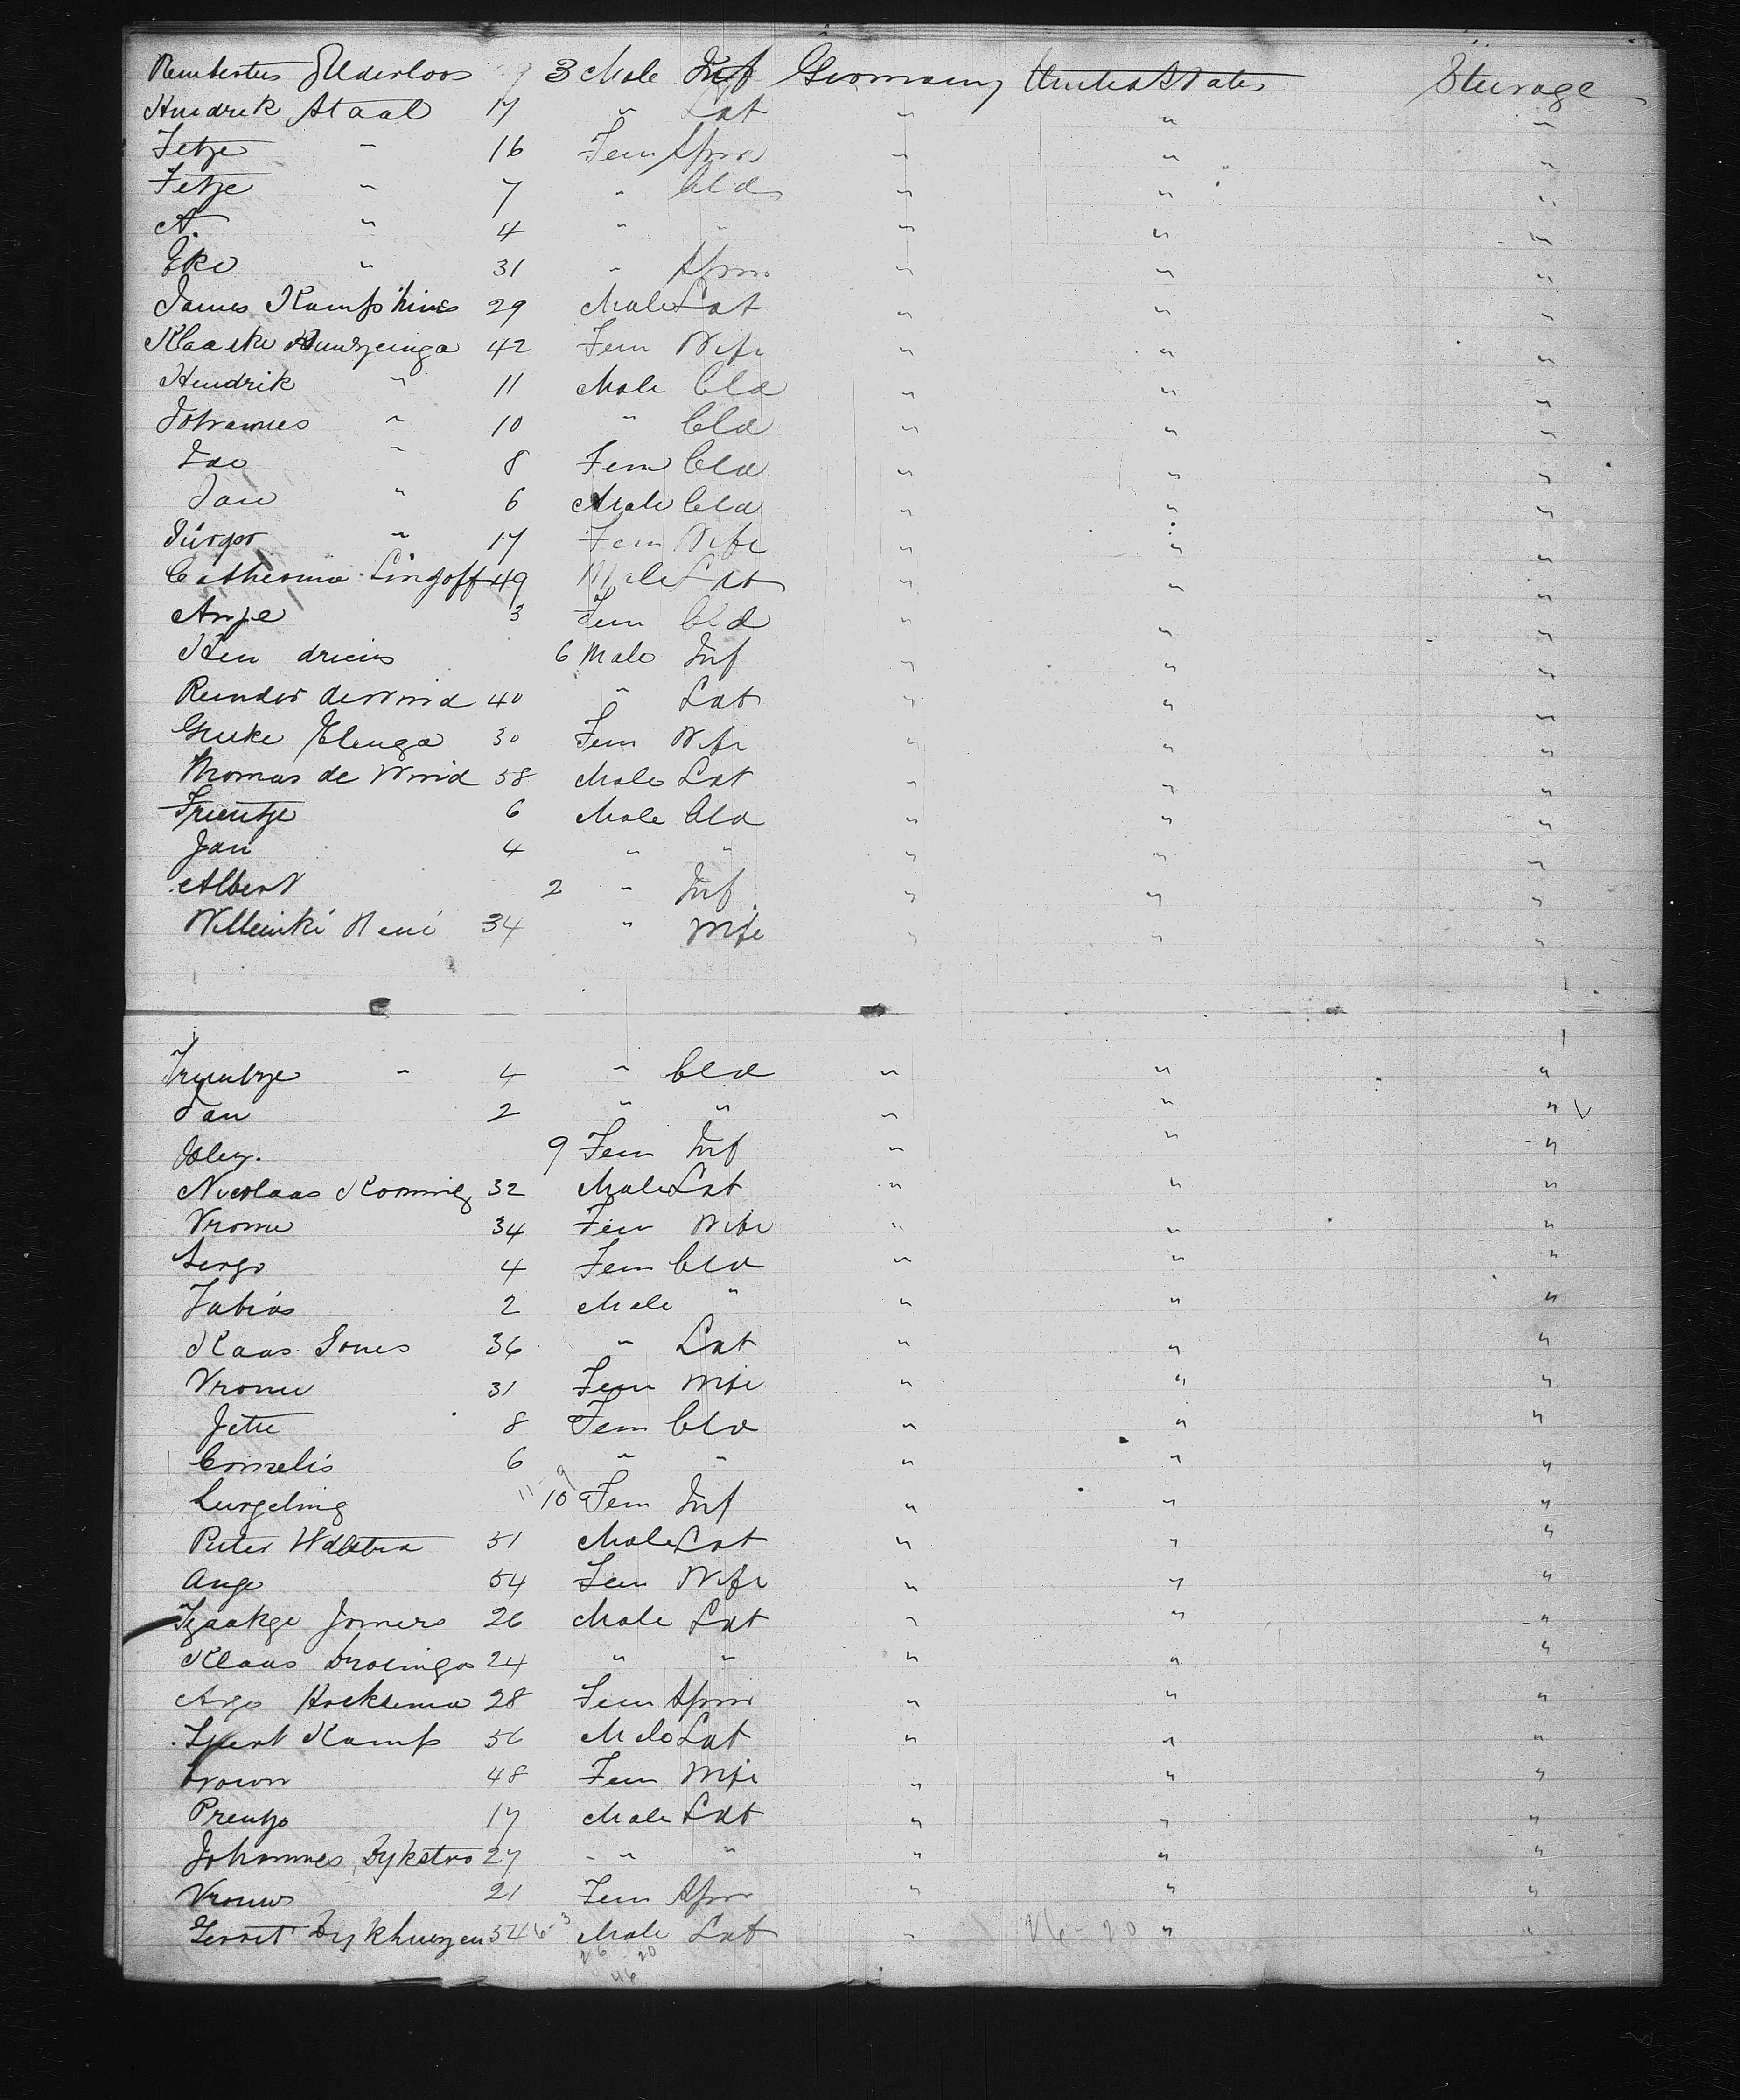 Rembertus Elderloos 3 Male Inf Germany United States Steerage
Hendrik Staal 17 " Lat " " "
Fetje " 16 Fem Spin " " "
Fetje " 7 " Cld " " "
A. " 4 " " " " "
Eke " 31 " Spin " " "
James Kamphius 29 Male Lat " " "
Klaaske 42 Fem Wife " " "
Hendrik " 11 Male Cld " " "
Johannes " 10 " Cld " " "
" 8 Fem Cld " " "
Jan " 6 Male Cld " " "
" 17 Fem Wife " " "
Catherina Lingoff 49 Male Lat " " "
Anje 3 Fem Cld " " "
Hen dricus 6 Male Inf " " "
Reinder de Wind 40 " Lat " " "
Geeke Elenga 30 Fem Wife " " "
Thomas de Wind 58 Male Lat " " "
Trientje 6 Male Cld " " "
Jan 4 " " " " "
Albert 2 " Inf " " "
34 " Wife " " "
" 4 " Cld " " "
Jan 2 " " " " "
9 Fem Inf " " "
Nicolaas Konning 32 Male Lat " " "
Vrouw 34 Fem Wife " " "
4 Fem Cld " " "
Tobias 2 Male " " " "
Klaas Jones 36 " Lat " " "
Vrouw 31 Fem Wife " " "
Jette 8 Fem Cld " " "
Cornelis 6 " " " " "
10 Fem Inf " " "
Pieter 51 Male Lat " " "
Ange 54 Fem Wife " " "
Jomers 26 Male Lat " " "
Klaas 24 " " " " "
Hoeksema 28 Fem Spin " " "
Kamp 56 Male Lat " " "
48 Fem Wife " " "
Prentje 17 Male Lat " " "
Johannes Dykstra 27 " " " " "
Vrouw 21 Fem Spin " " "
Gerrit Dykhuyzen 34 6-3 Male Lat " 26-20 " "
26 20
46